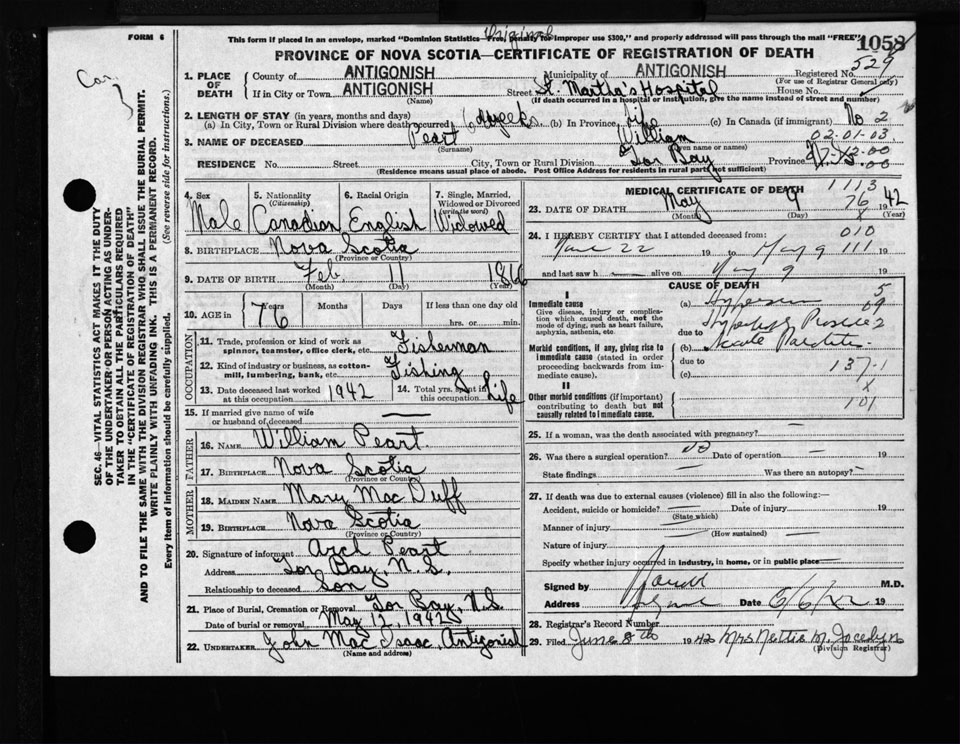 FORM 6
This form if placed in an envelope, marked "Dominion Statistics—Free, penalty for improper use $300," and properly addressed will pass through the mail "FREE"
Original
PROVINCE OF NOVA SCOTIA—CERTIFICATE OF REGISTRATION OF DEATH
1058
529
1. PLACE OF DEATH
County of ANTIGONISH Municipality of ANTIGONISH Registered No.
(For use of Registrar General only)
If in City or Town ANTIGONISH Street St. Martha's Hospital House No.
(Name) (If death occurred in a hospital or institution, give the name instead of street and number)
2. LENGTH OF STAY (in years, months and days)
(a) In City, Town or Rural Division where death occurred 6 weeks. (b) In Province life (c) In Canada (if immigrant) No 2
3. NAME OF DECEASED Peart William 02-01-03
(Surname) (Given name or names)
RESIDENCE No. Street City, Town or Rural Division Tor Bay Province N.S.
(Residence means usual place of abode. Post Office Address for residents in rural parts not sufficient)
4. Sex Male
5. Nationality (Citizenship) Canadian
6. Racial Origin English
7. Single, Married, Widowed or Divorced (write the word) Widowed
8. BIRTHPLACE Nova Scotia
(Province or Country)
9. DATE OF BIRTH Feb. 11 1866
(Month) (Day) (Year)
10. AGE in 76 Years Months Days If less than one day old
hrs. or min.
OCCUPATION
11. Trade, profession or kind of work as spinner, teamster, office clerk, etc. Fisherman
12. Kind of industry or business, as cotton-mill, lumbering, bank, etc. Fishing
13. Date deceased last worked at this occupation 1942
14. Total yrs. spent in this occupation Life
15. If married give name of wife or husband of deceased
FATHER
16. NAME William Peart.
17. BIRTHPLACE Nova Scotia
(Province or Country)
MOTHER
18. MAIDEN NAME Mary Mac Duff
19. BIRTHPLACE Nova Scotia
(Province or Country)
20. Signature of informant Arch Peart
Address Tor Bay, N.S.
Relationship to deceased Son
21. Place of Burial, Cremation or Removal Tor Bay, N.S.
Date of burial or removal May 12, 1942
22. UNDERTAKER John Mac Isaac, Antigonish
(Name and address)
MEDICAL CERTIFICATE OF DEATH
1113
76
X
23. DATE OF DEATH May 9 1942
(Month) (Day) (Year)
24. I HEREBY CERTIFY that I attended deceased from:
010
111
22 19 to May 9 19
and last saw h — alive on May 9 19
CAUSE OF DEATH
I
Immediate cause
Give disease, injury or complication which caused death, not the mode of dying, such as heart failure, asphyxia, asthenia, etc.
(a)
due to
(b)
Morbid conditions, if any, giving rise to immediate cause (stated in order proceeding backwards from immediate cause).
due to
(c)
137.1
X
101
II
Other morbid conditions (if important) contributing to death but not causally related to immediate cause.
25. If a woman, was the death associated with pregnancy? —
26. Was there a surgical operation? no Date of operation — 19
State findings Was there an autopsy? —
27. If death was due to external causes (violence) fill in also the following:—
Accident, suicide or homicide? Date of injury 19
(State which)
Manner of injury
(How sustained)
Nature of injury
Specify whether injury occurred in industry, in home, or in public place
Signed by M.D.
Address Date 19
28. Registrar's Record Number
29. Filed June 8th 1942 Mrs Nettie M.
(Division Registrar)
SEC. 46—VITAL STATISTICS ACT MAKES IT THE DUTY OF THE UNDERTAKER OR PERSON ACTING AS UNDERTAKER TO OBTAIN ALL THE PARTICULARS REQUIRED IN THE "CERTIFICATE OF REGISTRATION OF DEATH" AND TO FILE THE SAME WITH THE DIVISION REGISTRAR WHO SHALL ISSUE THE BURIAL PERMIT.
WRITE PLAINLY WITH UNFADING INK. THIS IS A PERMANENT RECORD.
Every item of information should be carefully supplied. (See reverse side for instructions.)